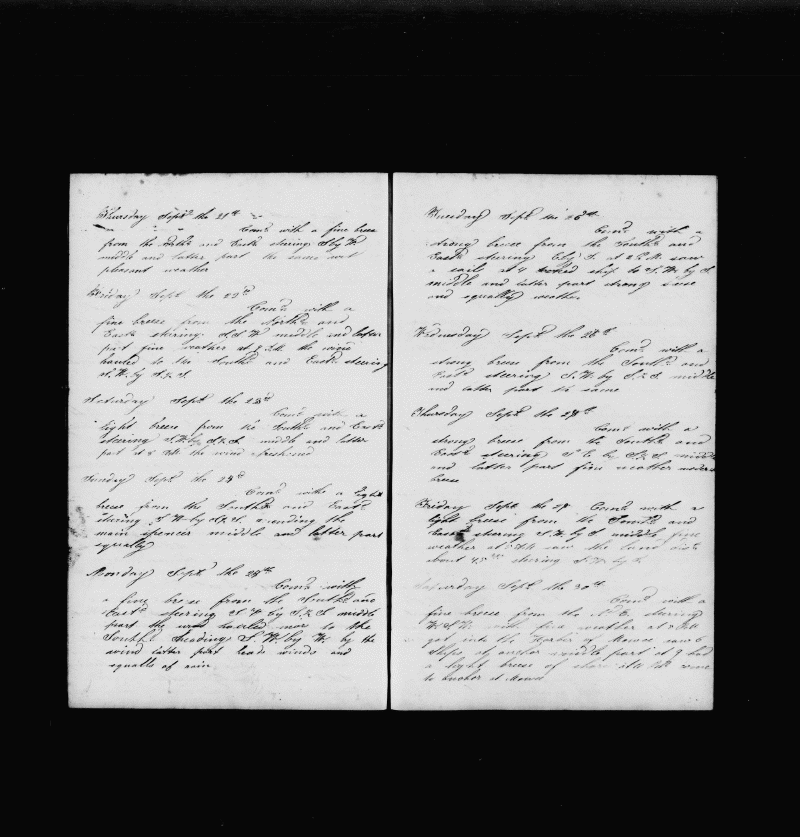 Thursday Sept the 21st
Com with a fine breeze
from the North and East steering S by W
middle and latter part the same and
pleasant weather
Friday Sept the 22d
Com with a
fine breeze from the North and
East steering S S W middle and latter
part fine weather at 8 P.M. the wind
hauled to the South and East steering
S. W. by S. ½ S
Saturday Sept the 23d
Com with a
light breeze from the South and East
steering S.W. by S. ½ S. middle and latter
part at 8 the wind freshened
Sunday Sept the 24th
Com with a light
breeze from the South and East
steering S W by S. ½ S. mending the
main spencer middle and latter part
squally
Monday Sept the 25th
Com with
a fine breeze from the South and
East steering S W by S. ½ S middle
part the wind hauled more to the
South heading S. W. by W. by the
wind latter part head winds and
squalls of rain
Tuesday Sept the 26th
Com with a
strong breeze from the South and
East steering at 2 P.M. saw
a sail at 4 ship to S. W. by S
middle and latter part strong
and squally weather
Wednesday Sept the 26th
Com with a
strong breeze from the South and
East steering S. W. by S. ½ S middle
and latter part the same
Thursday Sept the 28th
Com with a
strong breeze from the South and
East steering by S. ½ S middle
and latter part fine weather moderate
breeze
Friday Sept the 29 Com with a
light breeze from the South and
East steering S. W. by S middle fine
weather at saw the land
about 45 steering
Saturday Sept the 30th
Com with a
fine breeze from the N. E. steering
W.S.W. with fine weather at
got into the Harbr of Mowee saw 6
Ships at anchor middle part at 9 had
a light breeze of shore come
to anchor at Mowee